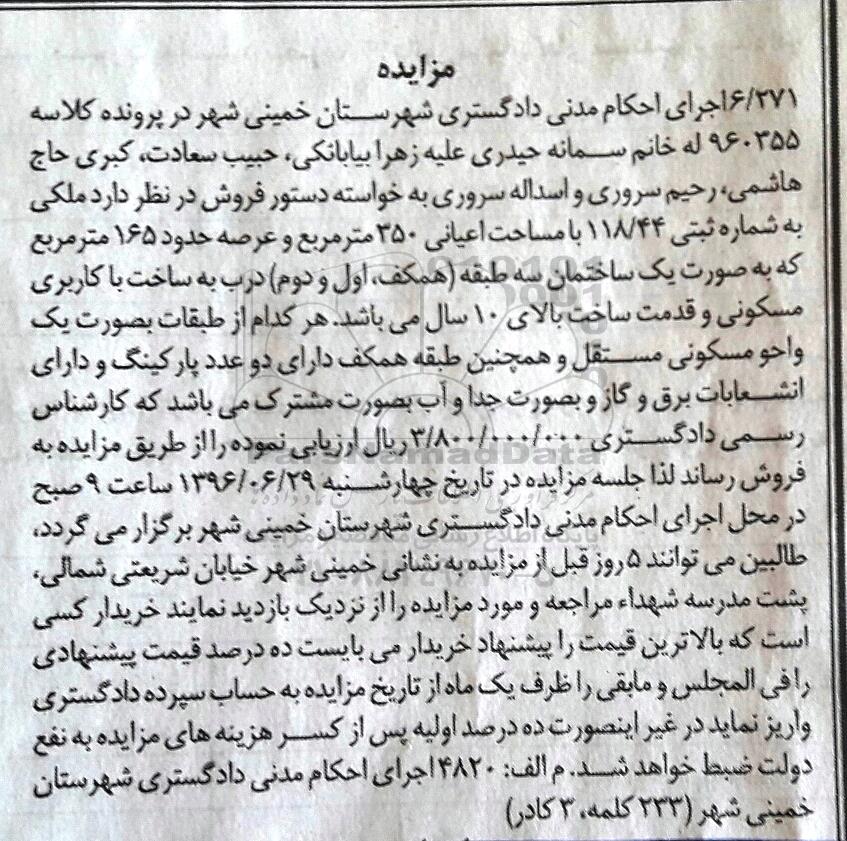 مزایده
۶/۲۷۱اجرای احکام مدنی دادگستری شهرستان خمینی شهر در پرونده کلاسه
۹۶۰۳۵۵ له خانم سمانه حیدری علیه زهرا بیابانکی، حبیب سعادت، کبری حاج
هاشمی، رحیم سروری و اسداله سروری به خواسته دستور فروش در نظر دارد ملکی
به شماره ثبتی ۱۱۸/۴۴ با مساحت اعیانی ۳۵۰ مترمربع و عرصه حدود ۱۶۵ مترمربع
که به صورت یک ساختمان سه طبقه (همکف، اول و دوم) درب به ساخت با کاربری
مسکونی و قدمت ساخت بالای ۱۰ سال می باشد. هر کدام از طبقات بصورت یک
واحو مسکونی مستقل و همچنین طبقه همکف دارای دو عدد پارکینگ و دارای
انشعابات برق و گاز و بصورت جدا و آب بصورت مشترک می باشد که کارشناس
رسمی دادگستری ۳/۸۰۰/۰۰۰/۰۰۰ ریال ارزیابی نموده را از طریق مزایده به
فروش رساند لذا جلسه مزایده در تاریخ چهارشنبه ۱۳۹۶/۰۶/۲۹ ساعت ۹ صبح
در محل اجرای احکام مدنی دادگستری شهرستان خمینی شهر برگزار می گردد،
طالبین می توانند ۵ روز قبل از مزایده به نشانی خمینی شهر خیابان شریعتی شمالی،
پشت مدرسه شهداء مراجعه و مورد مزایده را از نزدیک بازدید نمایند خریدار کسی
است که بالاترین قیمت را پیشنهاد خریدار می بایست ده درصد قیمت پیشنهادی
را فی المجلس و مابقی را ظرف یک ماه از تاریخ مزایده به حساب سپرده دادگستری
واریز نماید در غیر اینصورت ده درصد اولیه پس از کسر هزینه های مزایده به نفع
دولت ضبط خواهد شد. م الف: ۴۸۲۰ اجرای احکام مدنی دادگستری شهرستان
خمینی شهر (۲۳۳ کلمه، ۳ کادر)
ParsNamadData